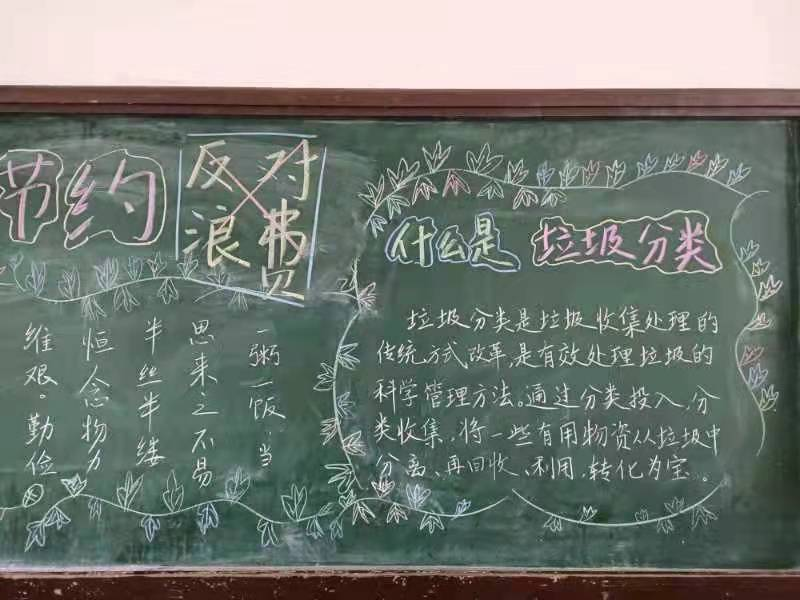 节约
反对
浪费
一粥一饭,当
思来之不易
半丝半缕
恒念物力
维艰。勤俭
什么是 垃圾分类
垃圾分类是垃圾收集处理的
传统方式改革,是有效处理垃圾的
科学管理方法。通过分类投入,分
类收集,将一些有用物资从垃圾中
分离、再回收、利用,转化为宝。